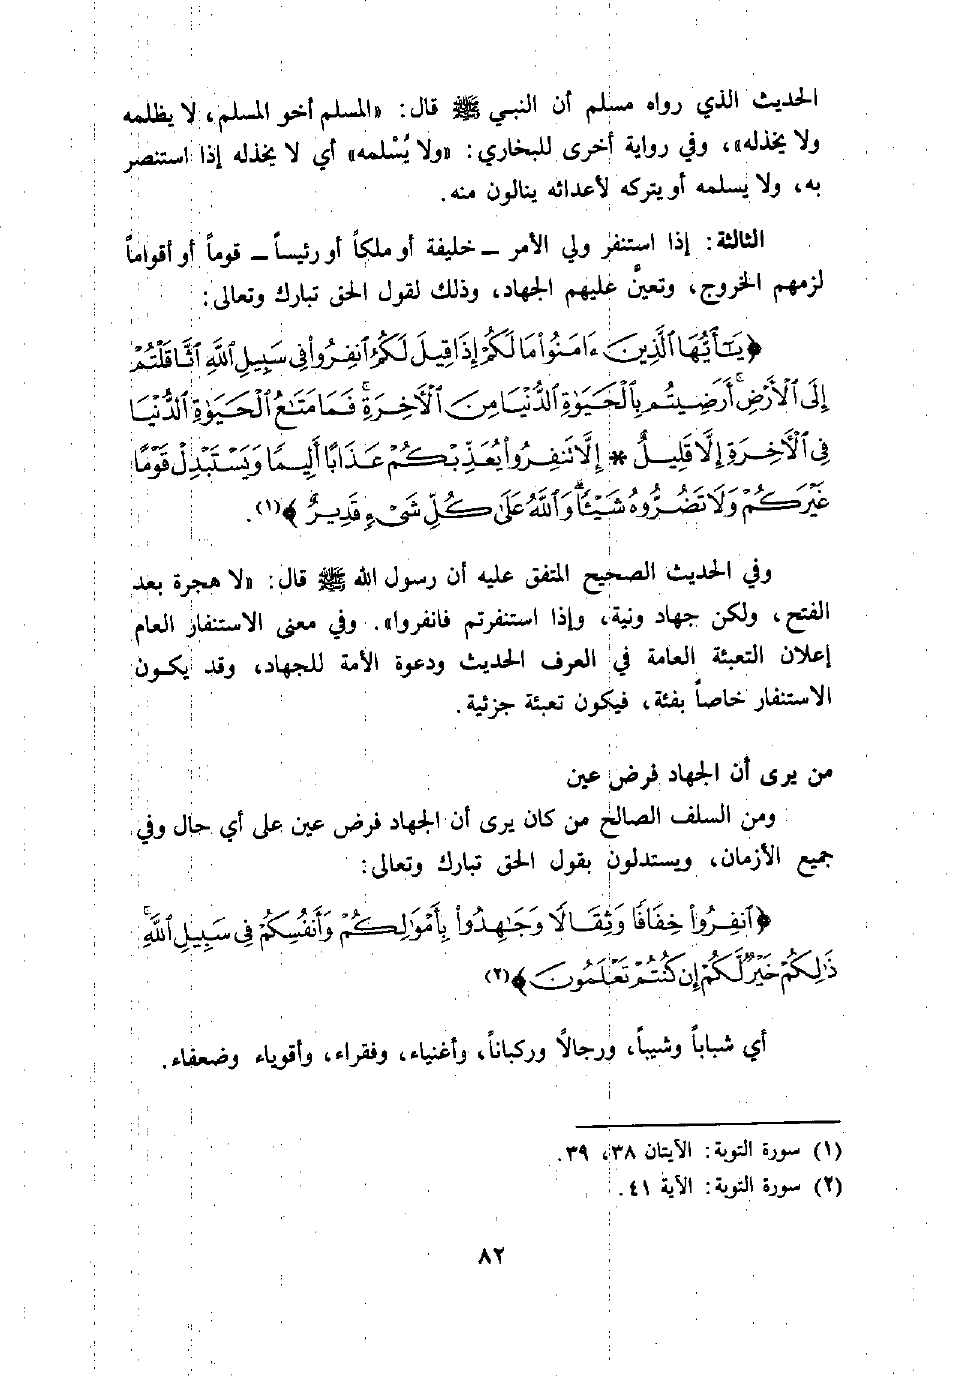 الحديث الذي رواه مسلم أن النبي ﷺ قال: «المسلم أخو المسلم، لا يظلمه
ولا يخذله»، وفي رواية أخرى للبخاري: «ولا يُسْلمه» أي لا يخذله إذا استنصر
به، ولا يسلمه أو يتركه لأعدائه ينالون منه.
الثالثة: إذا استنفر ولي الأمر ــ خليفة أو ملكاً أو رئيساً ــ قوماً أو أقواماً
لزمهم الخروج، وتعينَّ عليهم الجهاد، وذلك لقول الحق تبارك وتعالى:
﴿يَـٰٓأَيُّهَا ٱلَّذِينَ ءَامَنُوا۟ مَا لَكُمْ إِذَا قِيلَ لَكُمُ ٱنفِرُوا۟ فِى سَبِيلِ ٱللَّهِ ٱثَّاقَلْتُمْ
إِلَى ٱلْأَرْضِ ۚ أَرَضِيتُم بِٱلْحَيَوٰةِ ٱلدُّنْيَا مِنَ ٱلْأَخِرَةِ ۚ فَمَا مَتَـٰعُ ٱلْحَيَوٰةِ ٱلدُّنْيَا
فِى ٱلْأَخِرَةِ إِلَّا قَلِيلٌ * إِلَّا تَنفِرُوا۟ يُعَذِّبْكُمْ عَذَابًا أَلِيمًا وَيَسْتَبْدِلْ قَوْمًا
غَيْرَكُمْ وَلَا تَضُرُّوهُ شَيْـًٔا ۗ وَٱللَّهُ عَلَىٰ كُلِّ شَىْءٍ قَدِيرٌ﴾(١).
وفي الحديث الصحيح المتفق عليه أن رسول الله ﷺ قال: «لا هجرة بعد
الفتح، ولكن جهاد ونية، وإذا استنفرتم فانفروا». وفي معنى الاستنفار العام
إعلان التعبئة العامة في العرف الحديث ودعوة الأمة للجهاد، وقد يكون
الاستنفار خاصاً بفئة، فيكون تعبئة جزئية.
من يرى أن الجهاد فرض عين
ومن السلف الصالح من كان يرى أن الجهاد فرض عين على أي حال وفي
جميع الأزمان، ويستدلون بقول الحق تبارك وتعالى:
﴿ٱنفِرُوا۟ خِفَافًا وَثِقَالًا وَجَـٰهِدُوا۟ بِأَمْوَٰلِكُمْ وَأَنفُسِكُمْ فِى سَبِيلِ ٱللَّهِ ۚ
ذَٰلِكُمْ خَيْرٌ لَّكُمْ إِن كُنتُمْ تَعْلَمُونَ﴾(٢)
أي شباباً وشيباً، ورجالاً وركباناً، وأغنياء، وفقراء، وأقوياء وضعفاء.
(١) سورة التوبة: الآيتان ٣٨، ٣٩.
(٢) سورة التوبة: الآية ٤١.
٨٢